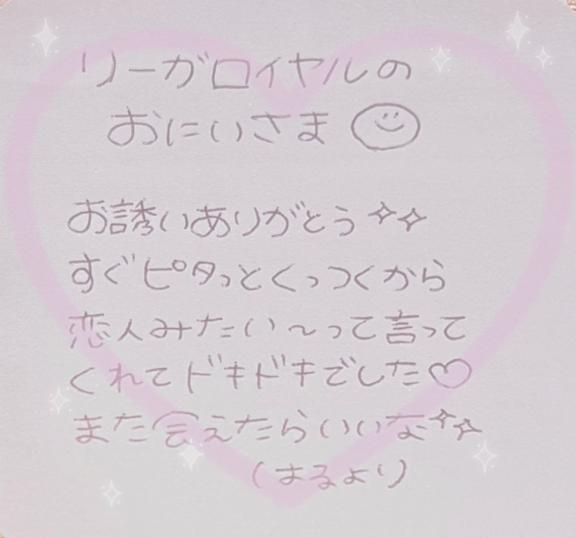 リーガロイヤルの
おにいさま
お誘いありがとう
すぐピタっとくっつくから
恋人みたい〜って言って
くれてドキドキでした♡
また会えたらいいな
(はるより)